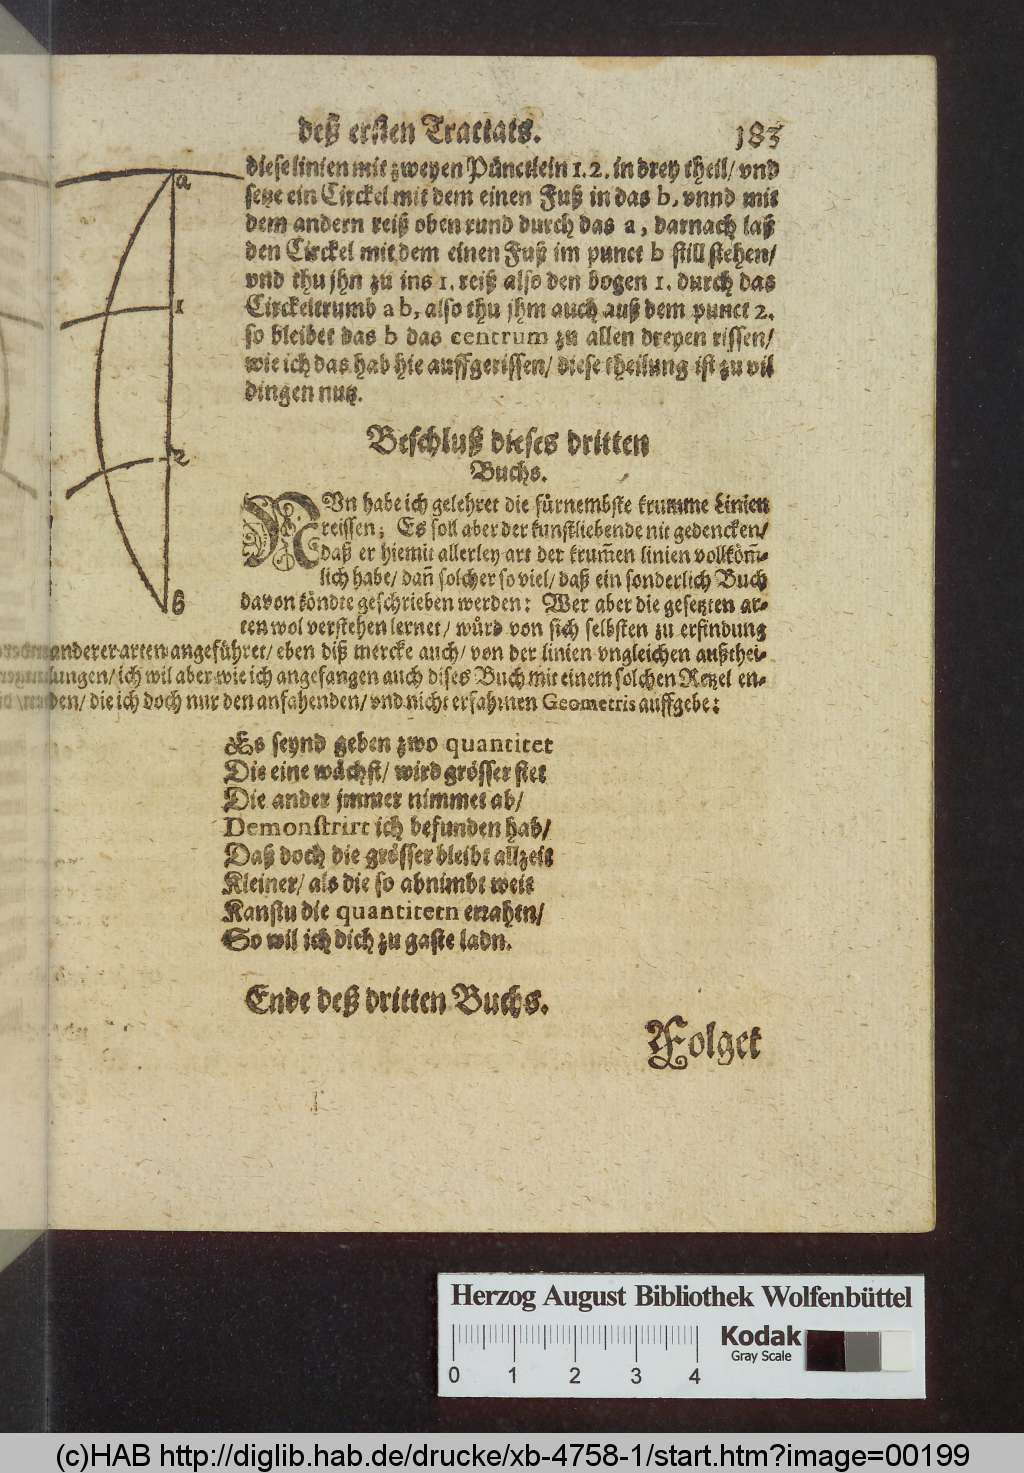 deß ersten Tractats. 183
diese linien mit zweyen Pünctlein 1. 2. in drey theil/ vnd
setze ein Circkel mit dem einen Fuß in das b, vnnd mit
dem andern reiß oben rund durch das a, darnach laß
den Circkel mit dem einen Fuß im punct b still stehen/
vnd thu jhn zu ins 1. reiß also den bogen 1. durch das
Circkeltrumb a b, also thu jhm auch auß dem punct 2.
so bleibet das b das centrum zu allen dreyen rissen/
wie ich das hab hie auffgerissen/ diese theilung ist zu vil
dingen nutz.
a
1
2
b
Beschluß dieses dritten
Buchs.
NUn habe ich gelehret die fürnembste krumme Linien
reissen; Es soll aber der kunstliebende nit gedencken/
daß er hiemit allerley art der krum̃en linien vollköm̃-
lich habe/ dañ solcher so viel/ daß ein sonderlich Buch
davon köndte geschrieben werden: Wer aber die gesetzten ar-
ten wol verstehen lernet/ würd von sich selbsten zu erfindung
anderer arten angeführet/ eben diß mercke auch/ von der linien vngleichen außthei-
lungen/ ich wil aber wie ich angefangen auch dises Buch mit einem solchen Retzel en-
den/ die ich doch nur den anfahenden/ vnd nicht erfahrnen Geometris auffgebe:
Es seynd geben zwo quantitet
Die eine wächst/ wird grösser stet
Die ander jmmer nimmet ab/
Demonstrirt ich befunden hab/
Daß doch die grösser bleibt allzeit
Kleiner/ als die so abnimbt weit
Kanstu die quantitetn errahtn/
So wil ich dich zu gaste ladn.
Ende deß dritten Buchs.
Folget
Herzog August Bibliothek Wolfenbüttel
0 1 2 3 4
Kodak
Gray Scale
(c)HAB http://diglib.hab.de/drucke/xb-4758-1/start.htm?image=00199